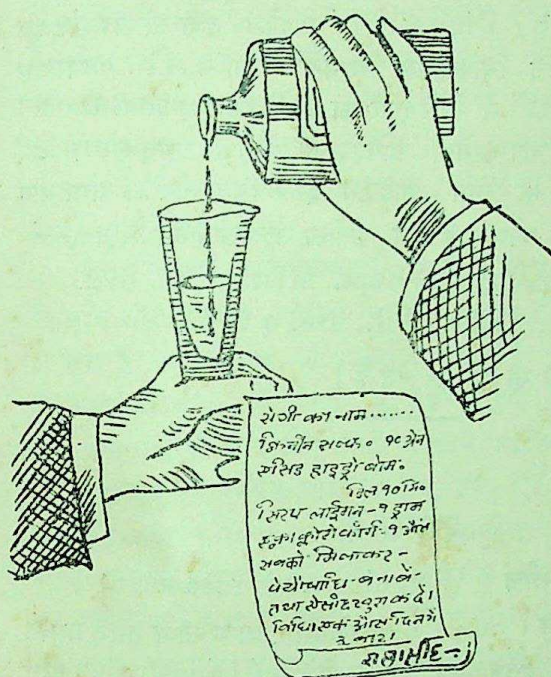 रोगी का नाम......
क्विनीन सल्फ० १८ ग्रेन
एसिड हाइड्रो ब्रोम०
डिल १० मि०
सिरप लाईमन - १ ड्राम
एक्वा क्लोरोफॉर्म - १ औंस
सबको मिलाकर -
पेयौषधि बनावें -
तथा ऐसी हर खुराक दें।
विधि एक औंस दिन में
३ बार।